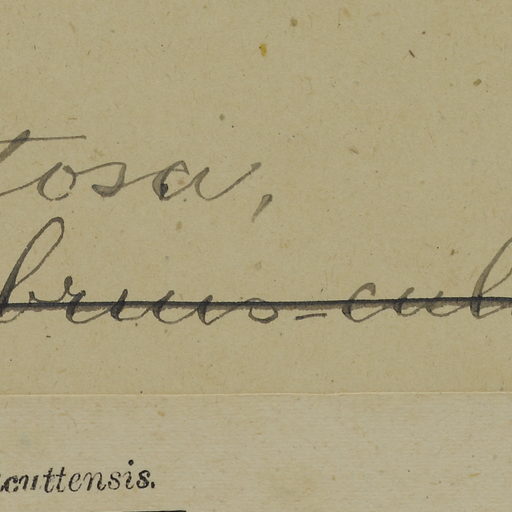 tosa,
brus-cul
cuttensis.